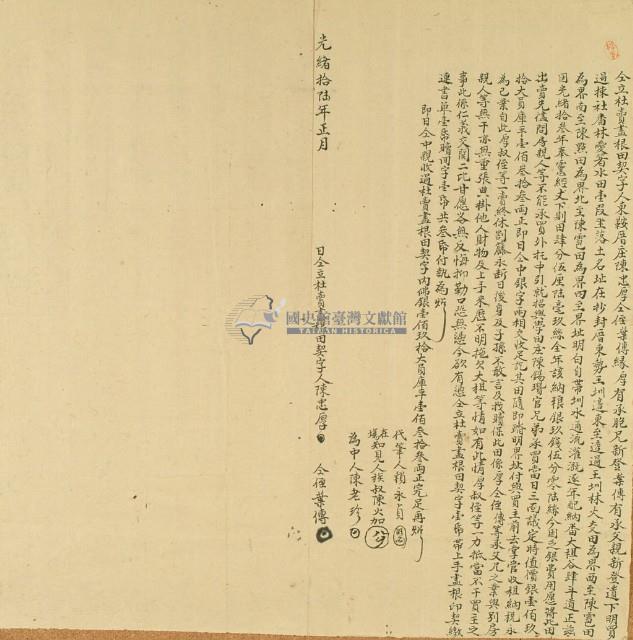 仝立杜賣盡根田契字人東鞍厝庄陳忠厚仝侄葉傳緣厚有承胞兄新登葉傳有承父親新登遺下明買
過揀社番林愛著水田壹段坐落土名址在抄封厝東勢王圳邊東至
為界南至陳熙田為界北至陳田為界四至界址明白自帶圳水通流灌溉逐年配納番大租谷肆斗道正玆
因光緒拾叁年奉憲經丈下則田肆分伍厘陸毫玖絲全年該納粮銀玖錢伍分零陸絲今因乏銀費用愿將此田
出賣先儘問房親人等不能承買外托中引就田庄陳錫官兄弟承買當日三面議定時值價銀壹佰玖
拾大員庫平壹佰叁拾叁兩正即日仝中銀字兩相交收足訖其田隨即踏明界址付與買主前去掌管收租納稅永
為己業自此厚叔侄等一賣終休割藤永斷日後身及子孫不敢言及找贖保此田係厚仝侄傳等承父兄之業與別房
親人等無干亦無重張典掛他人財物及上手來歷不明拖欠大租等情如有此情厚叔侄等一力抵當不干買主之
事此係仁義交關二比甘愿各無反悔抑勒口恐無憑今欲有憑仝立杜賣盡根田契字壹帋帶上手盡根印契繳
連丈單壹帋贈字壹帋共叁帋付執為炤
即日仝中親收過杜賣盡根田契字內佛銀壹佰玖拾大員庫平壹佰叁拾叁兩正完足再炤
代筆人賴永貞
在塲知見人族叔陳火加
為中人陳老珍
光緒拾陸年正月 日仝立杜賣盡根田契字人陳忠厚
仝侄葉傳
國史館臺灣文獻館
TAIWAN HISTORICA